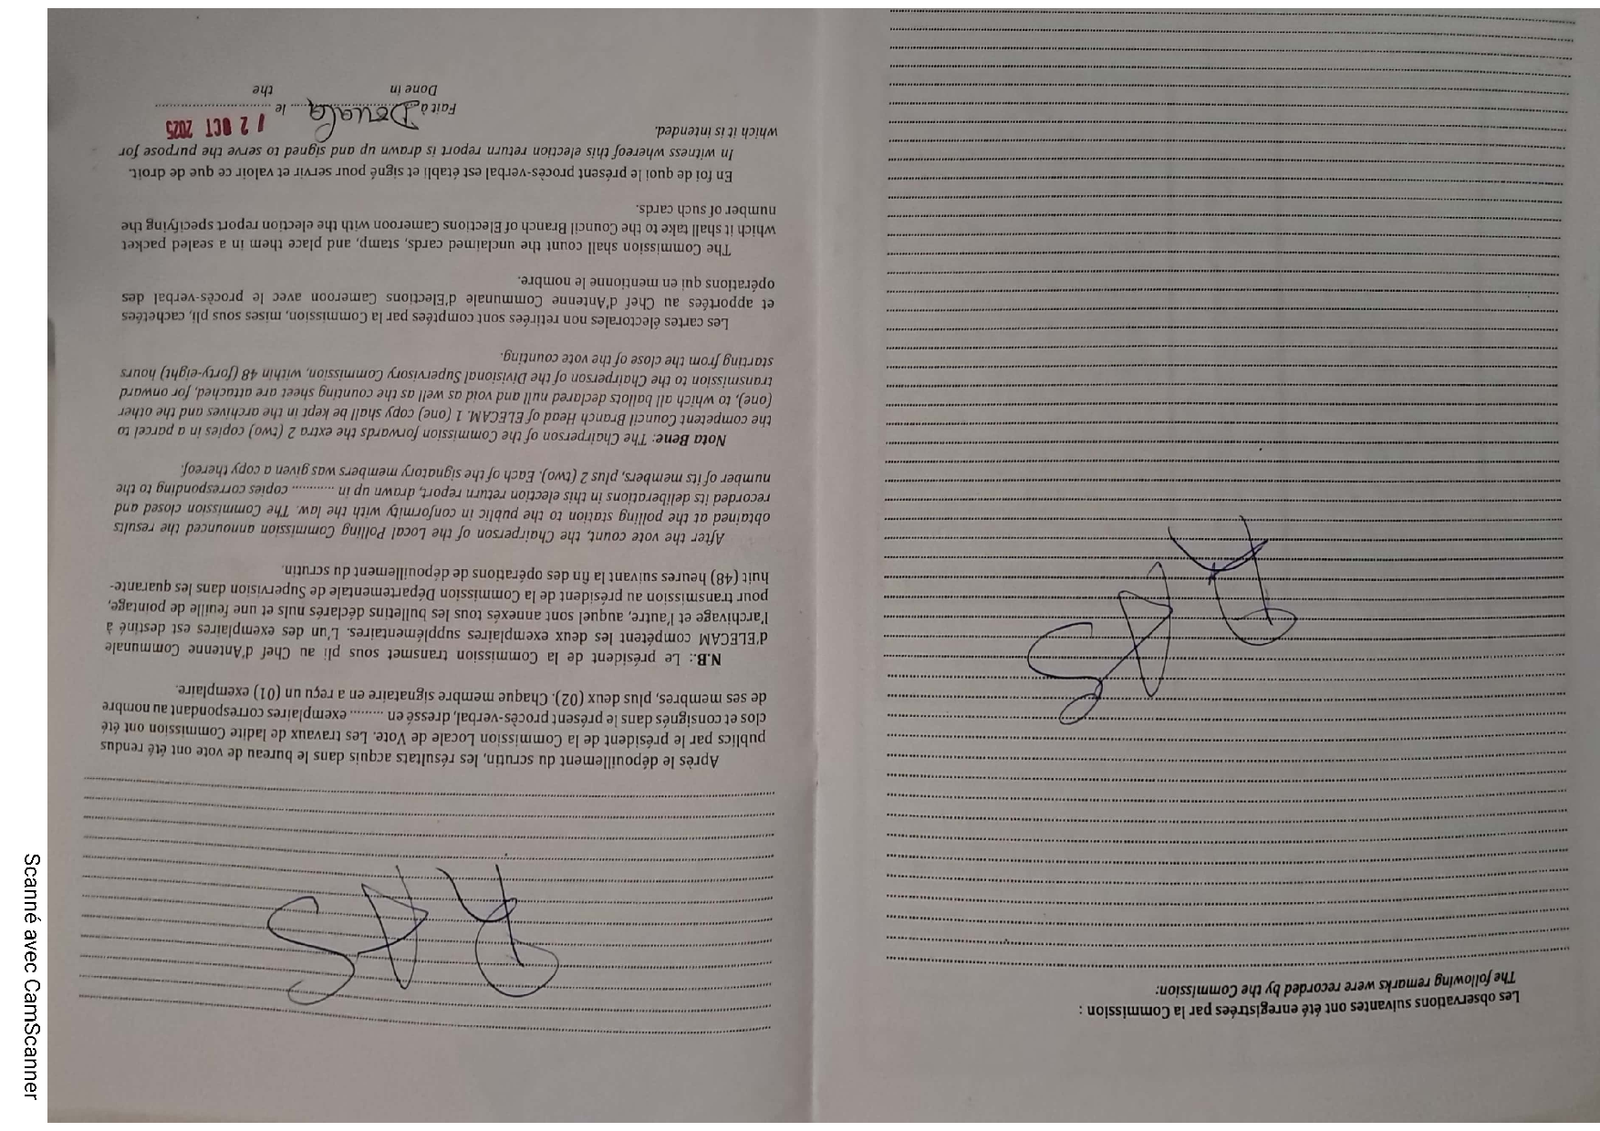 Les observations suivantes ont été enregistrées par la Commission :
The following remarks were recorded by the Commission:
RAS
RAS
Après le dépouillement du scrutin, les résultats acquis dans le bureau de vote ont été rendus
publics par le président de la Commission Locale de Vote. Les travaux de ladite Commission ont été
clos et consignés dans le présent procès-verbal, dressé en ......... exemplaires correspondant au nombre
de ses membres, plus deux (02). Chaque membre signataire en a reçu un (01) exemplaire.
N.B.: Le président de la Commission transmet sous pli au Chef d'Antenne Communale
d'ELECAM compétent les deux exemplaires supplémentaires. L'un des exemplaires est destiné à
l'archivage et l'autre, auquel sont annexés tous les bulletins déclarés nuls et une feuille de pointage,
pour transmission au président de la Commission Départementale de Supervision dans les quarante-
huit (48) heures suivant la fin des opérations de dépouillement du scrutin.
After the vote count, the Chairperson of the Local Polling Commission announced the results
obtained at the polling station to the public in conformity with the law. The Commission closed and
recorded its deliberations in this election return report, drawn up in ........... copies corresponding to the
number of its members, plus 2 (two). Each of the signatory members was given a copy thereof.
Nota Bene: The Chairperson of the Commission forwards the extra 2 (two) copies in a parcel to
the competent Council Branch Head of ELECAM. 1 (one) copy shall be kept in the archives and the other
(one), to which all ballots declared null and void as well as the counting sheet are attached, for onward
transmission to the Chairperson of the Divisional Supervisory Commission, within 48 (forty-eight) hours
starting from the close of the vote counting.
Les cartes électorales non retirées sont comptées par la Commission, mises sous pli, cachetées
et apportées au Chef d'Antenne Communale d'Elections Cameroon avec le procès-verbal des
opérations qui en mentionne le nombre.
The Commission shall count the unclaimed cards, stamp, and place them in a sealed packet
which it shall take to the Council Branch of Elections Cameroon with the election report specifying the
number of such cards.
En foi de quoi le présent procès-verbal est établi et signé pour servir et valoir ce que de droit.
In witness whereof this election return report is drawn up and signed to serve the purpose for
which it is intended.
Fait à Douala le 12 OCT 2025
Done in the
Scanné avec CamScanner